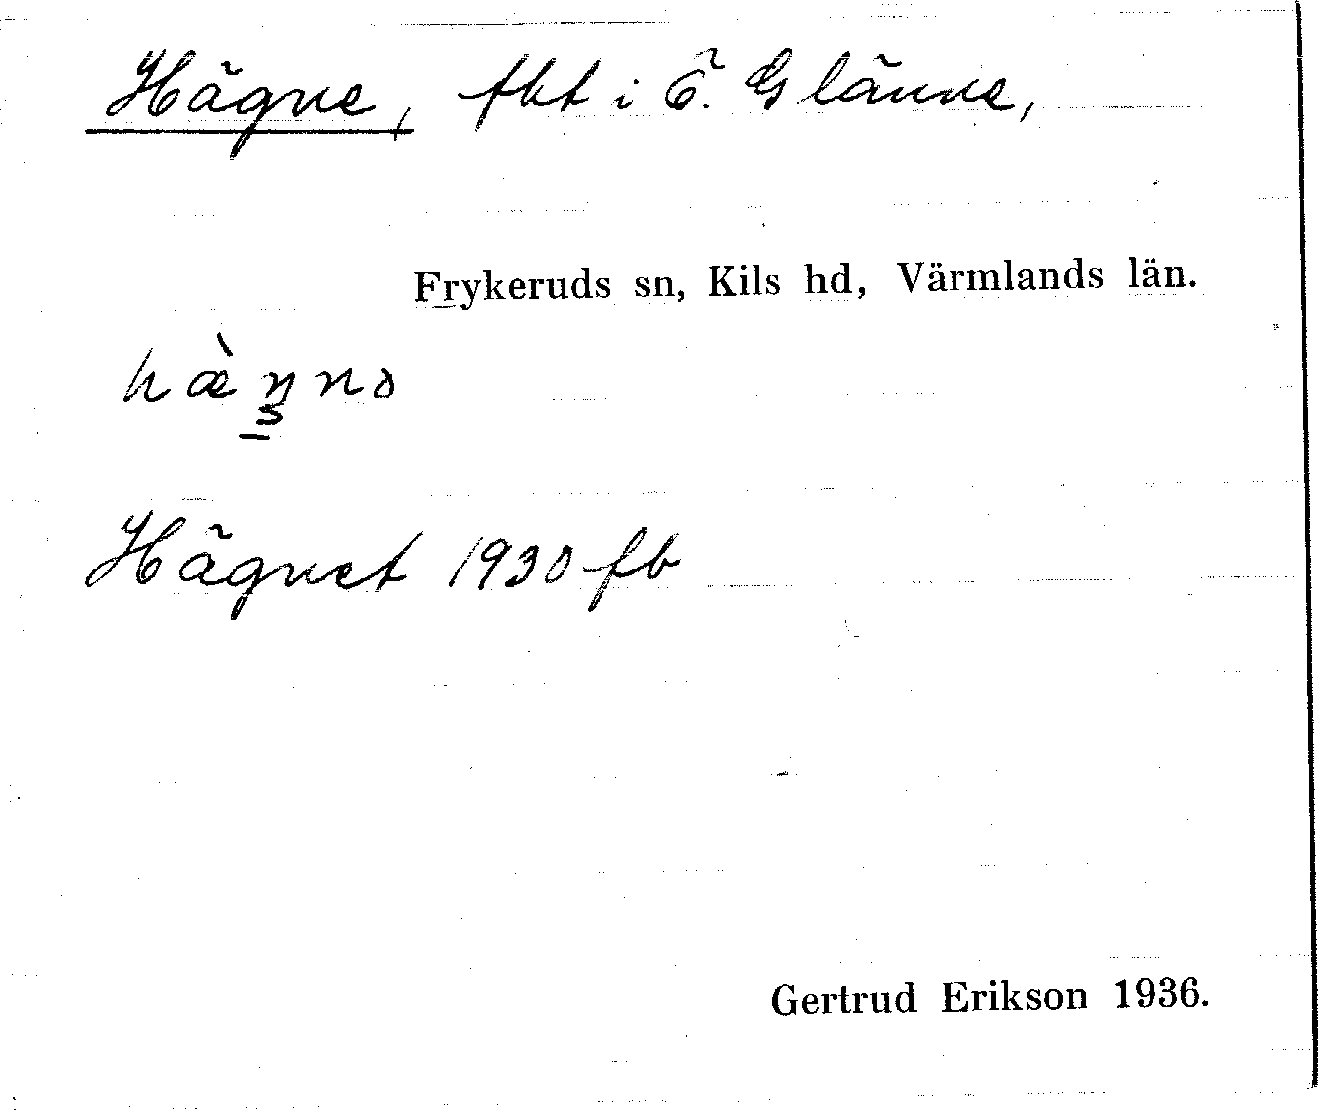 Hägne, fbt i Ö. Glänne,
Frykeruds sn, Kils hd, Värmlands län.
Hägnet 1930 fb
Gertrud Erikson 1936.